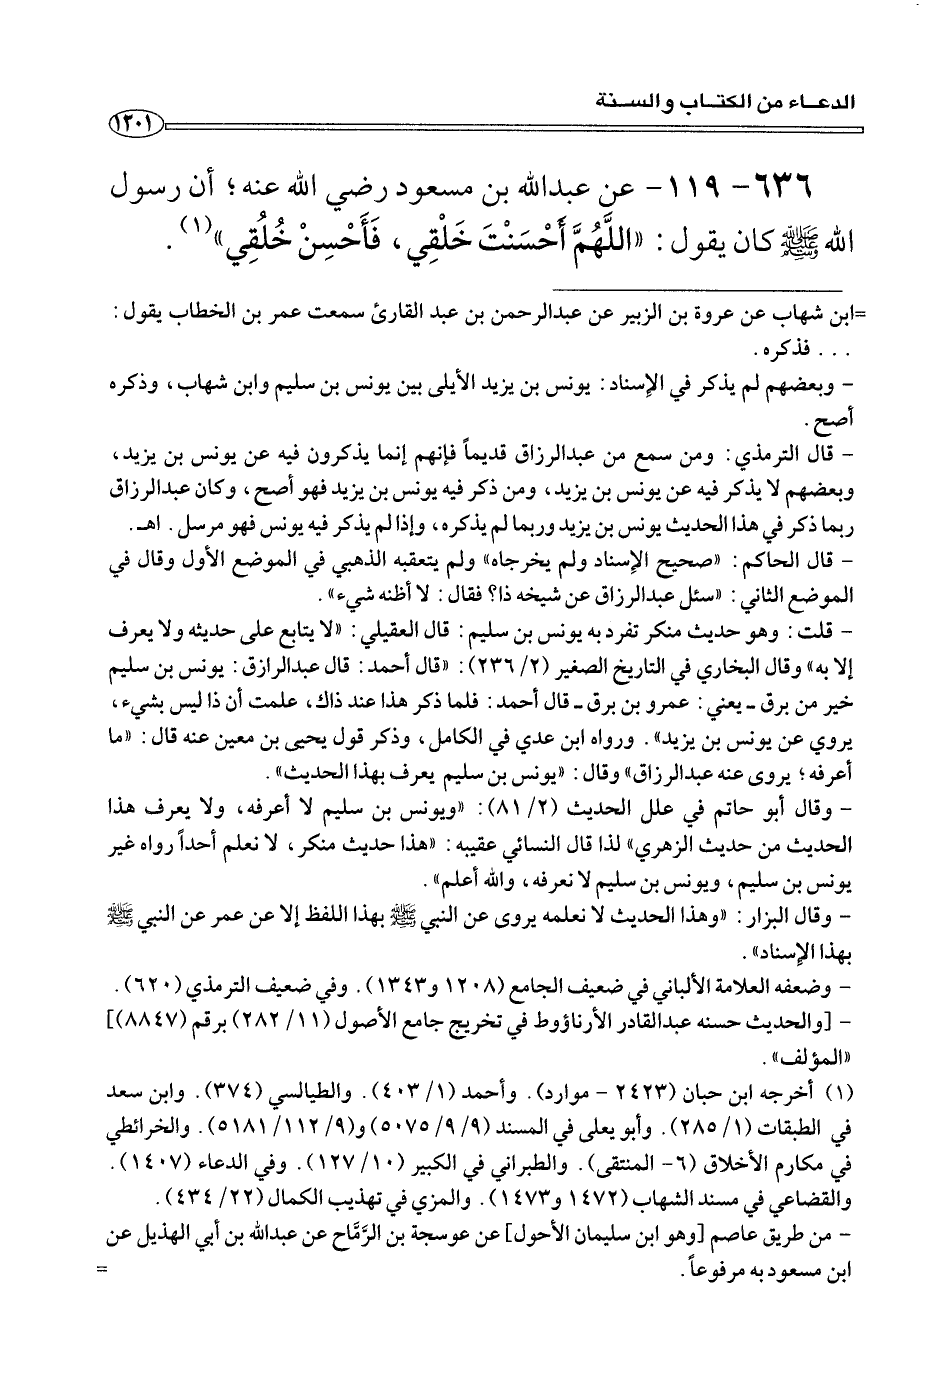 الدعاء من الكتاب والسنة
١٢٠١
٦٣٦- ١١٩- عن عبدالله بن مسعود رضي الله عنه؛ أن رسول
الله ﷺ كان يقول: «اللَّهُمَّ أَحْسَنْتَ خَلْقِي، فَأَحْسِنْ خُلُقِي»(١).
=ابن شهاب عن عروة بن الزبير عن عبدالرحمن بن عبد القارئ سمعت عمر بن الخطاب يقول:
... فذكره.
- وبعضهم لم يذكر في الإسناد: يونس بن يزيد الأيلى بين يونس بن سليم وابن شهاب، وذكره
أصح.
- قال الترمذي: ومن سمع من عبدالرزاق قديماً فإنهم إنما يذكرون فيه عن يونس بن يزيد،
وبعضهم لا يذكر فيه عن يونس بن يزيد، ومن ذكر فيه يونس بن يزيد فهو أصح، وكان عبدالرزاق
ربما ذكر في هذا الحديث يونس بن يزيد وربما لم يذكره، وإذا لم يذكر فيه يونس فهو مرسل. اهـ.
- قال الحاكم: «صحيح الإسناد ولم يخرجاه» ولم يتعقبه الذهبي في الموضع الأول وقال في
الموضع الثاني: «سئل عبدالرزاق عن شيخه ذا؟ فقال: لا أظنه شيء».
- قلت: وهو حديث منكر تفرد به يونس بن سليم: قال العقيلي: «لا يتابع على حديثه ولا يعرف
إلا به» وقال البخاري في التاريخ الصغير (٢/ ٢٣٦): «قال أحمد: قال عبدالرازق: يونس بن سليم
خير من برق ـ يعني: عمرو بن برق ـ قال أحمد: فلما ذكر هذا عند ذاك، علمت أن ذا ليس بشيء،
يروي عن يونس بن يزيد». ورواه ابن عدي في الكامل، وذكر قول يحيى بن معين عنه قال: «ما
أعرفه؛ يروى عنه عبدالرزاق» وقال: «يونس بن سليم يعرف بهذا الحديث».
- وقال أبو حاتم في علل الحديث (٢/ ٨١): «ويونس بن سليم لا أعرفه، ولا يعرف هذا
الحديث من حديث الزهري» لذا قال النسائي عقيبه: «هذا حديث منكر، لا نعلم أحداً رواه غير
يونس بن سليم، ويونس بن سليم لا نعرفه، والله أعلم».
- وقال البزار: «وهذا الحديث لا نعلمه يروى عن النبي ﷺ بهذا اللفظ إلا عن عمر عن النبي ﷺ
بهذا الإسناد».
- وضعفه العلامة الألباني في ضعيف الجامع (١٢٠٨ و١٣٤٣). وفي ضعيف الترمذي (٦٢٠).
- [والحديث حسنه عبدالقادر الأرناؤوط في تخريج جامع الأصول (١١/ ٢٨٢) برقم (٨٨٤٧)]
«المؤلف».
(١) أخرجه ابن حبان (٢٤٢٣ - موارد). وأحمد (١/ ٤٠٣). والطيالسي (٣٧٤). وابن سعد
في الطبقات (١/ ٢٨٥). وأبو يعلى في المسند (٩/ ٩/ ٥٠٧٥) و(٩/ ١١٢/ ٥١٨١). والخرائطي
في مكارم الأخلاق (٦- المنتقى). والطبراني في الكبير (١٠/ ١٢٧). وفي الدعاء (١٤٠٧).
والقضاعي في مسند الشهاب (١٤٧٢ و١٤٧٣). والمزي في تهذيب الكمال (٢٢/ ٤٣٤).
- من طريق عاصم [وهو ابن سليمان الأحول] عن عوسجة بن الرَّمَّاح عن عبدالله بن أبي الهذيل عن
ابن مسعود به مرفوعاً. =